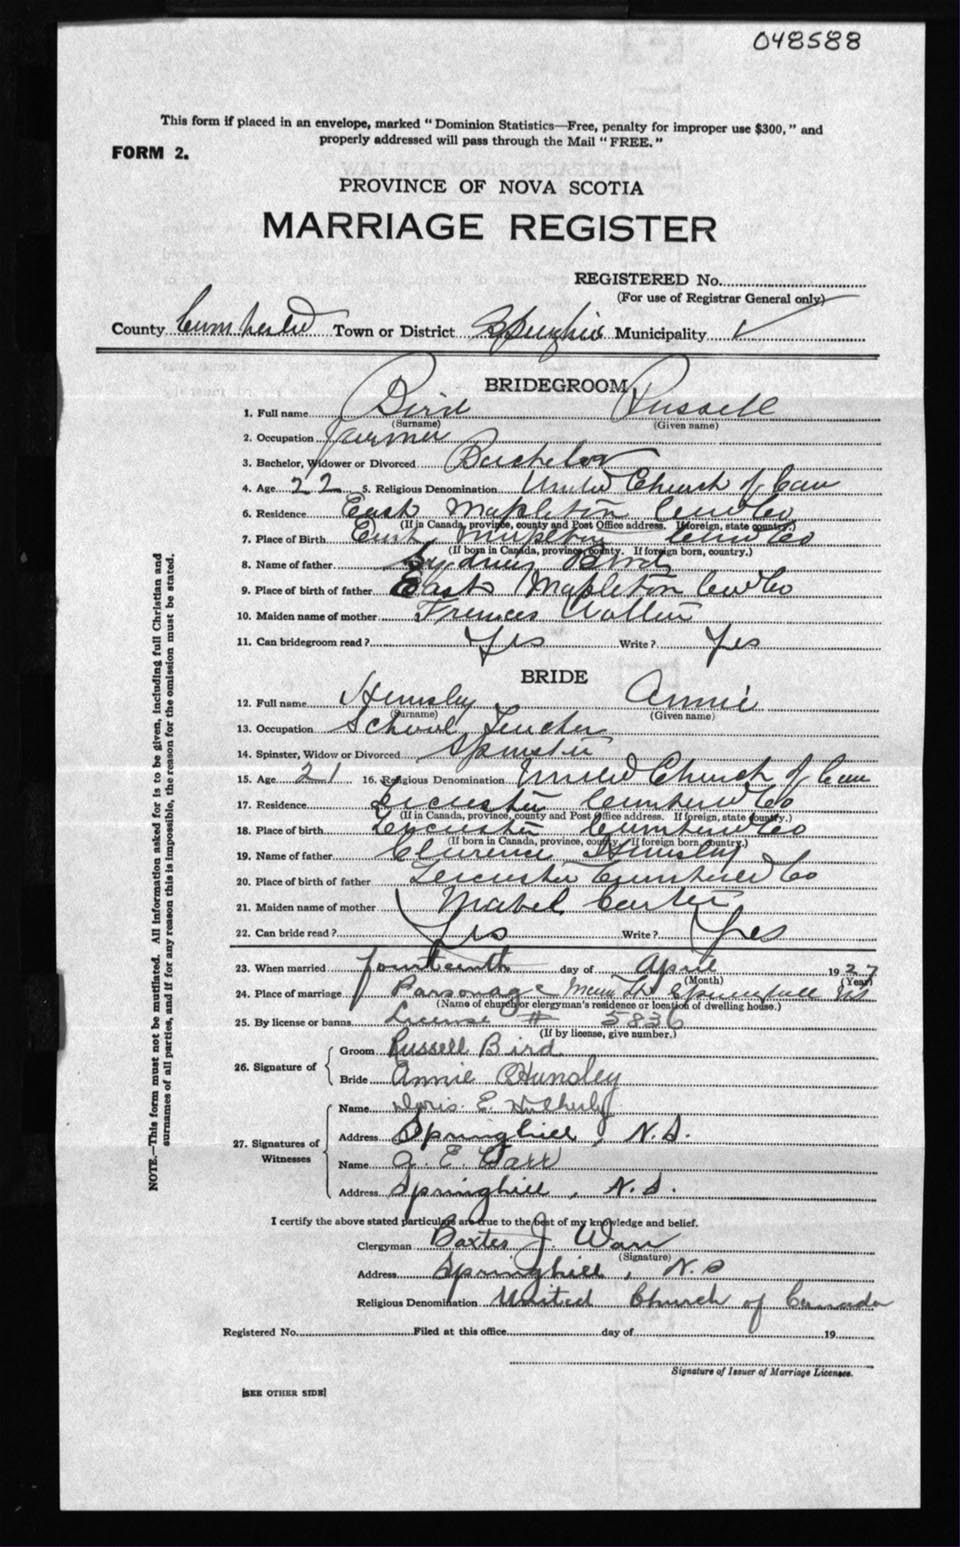 048588
This form if placed in an envelope, marked "Dominion Statistics—Free, penalty for improper use $300," and
properly addressed will pass through the Mail "FREE."
FORM 2.
PROVINCE OF NOVA SCOTIA
MARRIAGE REGISTER
REGISTERED No.
(For use of Registrar General only)
County Cumberland Town or District Springhill Municipality ✓
BRIDEGROOM
1. Full name Bird Russell
(Surname) (Given name)
2. Occupation Farmer
3. Bachelor, Widower or Divorced Bachelor
4. Age 22 5. Religious Denomination United Church of Can
6. Residence East Mapleton Cum Co
(If in Canada, province, county and Post Office address. If foreign, state country.)
7. Place of Birth East Mapleton Cum Co
(If born in Canada, province, county. If foreign born, country.)
8. Name of father Sydney Bird
9. Place of birth of father East Mapleton Cum Co
10. Maiden name of mother Frances
11. Can bridegroom read? Yes Write? Yes
BRIDE
12. Full name Hunsley Annie
(Surname) (Given name)
13. Occupation School Teacher
14. Spinster, Widow or Divorced Spinster
15. Age 21 16. Religious Denomination United Church of Can
17. Residence Leicester Cumberland Co
(If in Canada, province, county and Post Office address. If foreign, state country.)
18. Place of birth Leicester Cumberland Co
(If born in Canada, province, county. If foreign born, country.)
19. Name of father Clarence Hunsley
20. Place of birth of father Leicester Cumberland Co
21. Maiden name of mother Mabel Carter
22. Can bride read? Yes Write? Yes
23. When married fourteenth day of April 1927
(Month) (Year)
24. Place of marriage Parsonage
(Name of church or clergyman's residence or location of dwelling house.)
25. By license or banns License # 5836
(If by license, give number.)
26. Signature of
Groom Russell Bird
Bride Annie Hunsley
27. Signatures of Witnesses
Name Doris E.
Address Springhill, N.S.
Name E. Warr
Address Springhill, N.S.
I certify the above stated particulars are true to the best of my knowledge and belief.
Clergyman Baxter J. Warr
(Signature)
Address Springhill, N.S
Religious Denomination United Church of Canada
Registered No. Filed at this office day of 19
Signature of Issuer of Marriage Licenses.
[SEE OTHER SIDE]
NOTE.—This form must not be mutilated. All information asked for is to be given, including full Christian and
surnames of all parties, and if for any reason this is impossible, the reason for the omission must be stated.